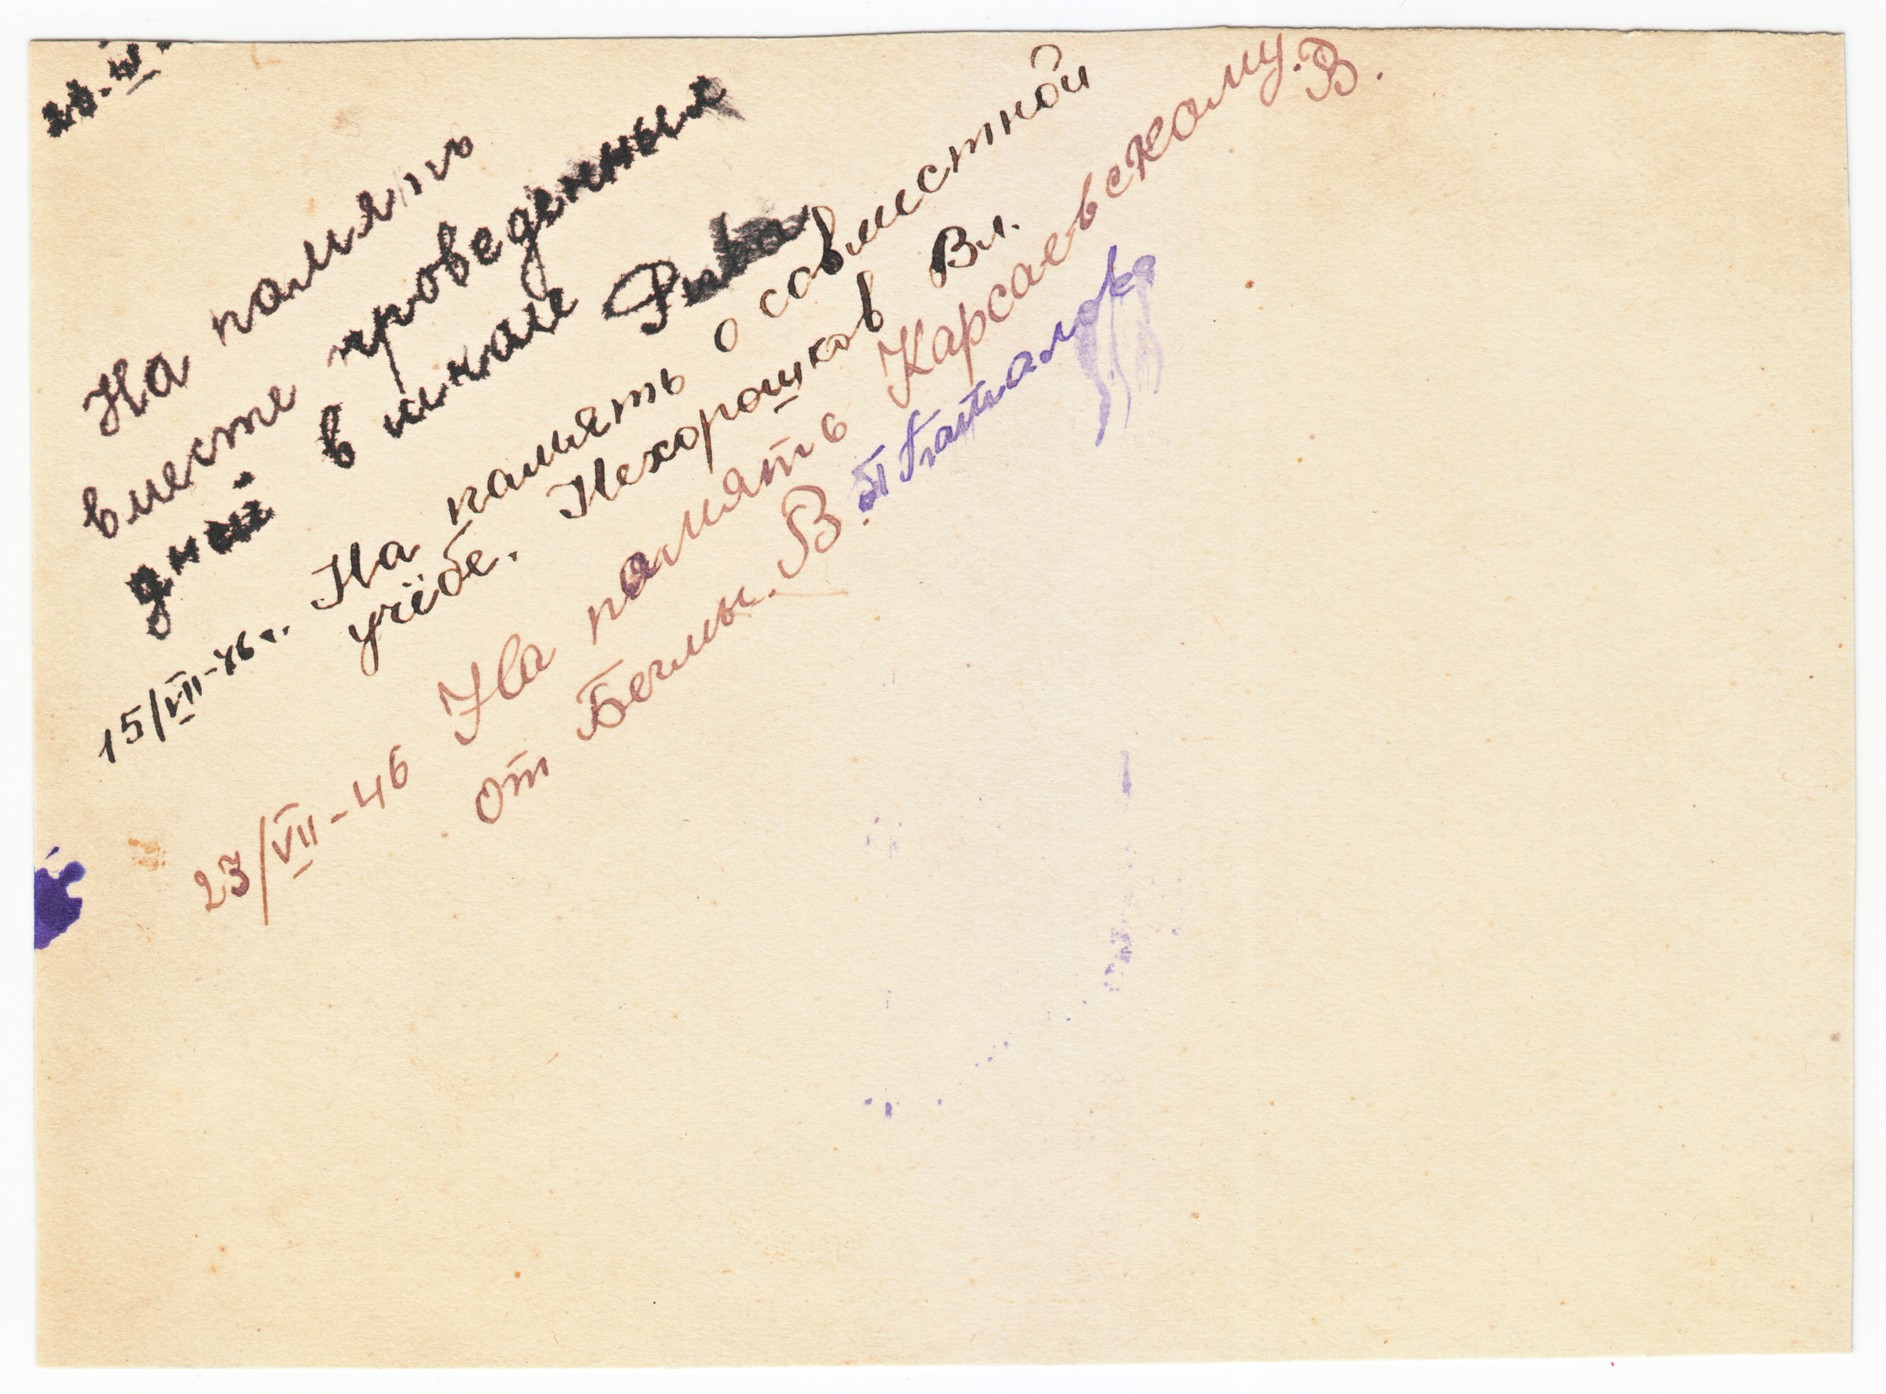 На память
вместе проведенных
дней в
15/VII-46 г. На память о совмистной
учёбе. Нехорошков Вл.
23/VII-46 На память Карсаевскому. В.
от Беглмы. В.